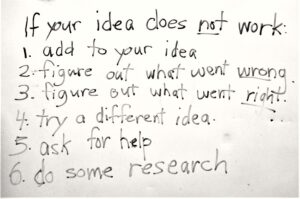 If your idea does not work:
1. add to your idea
2. figure out what went wrong
3. figure out what went right.
4. try a different idea.
5. ask for help
6. do some research